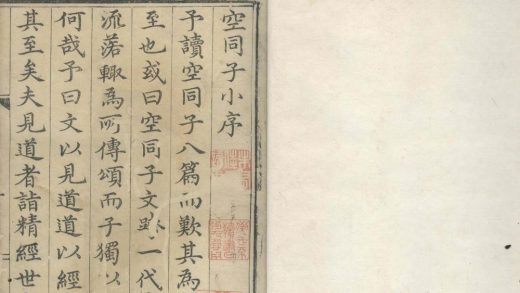 空同子小序
予讀空同子八篇而歎其為
至也或曰空同子文 一代
流落輙為所傳頌而子獨以
何哉予曰文以見道道以經
其至矣夫見道者詣精經世